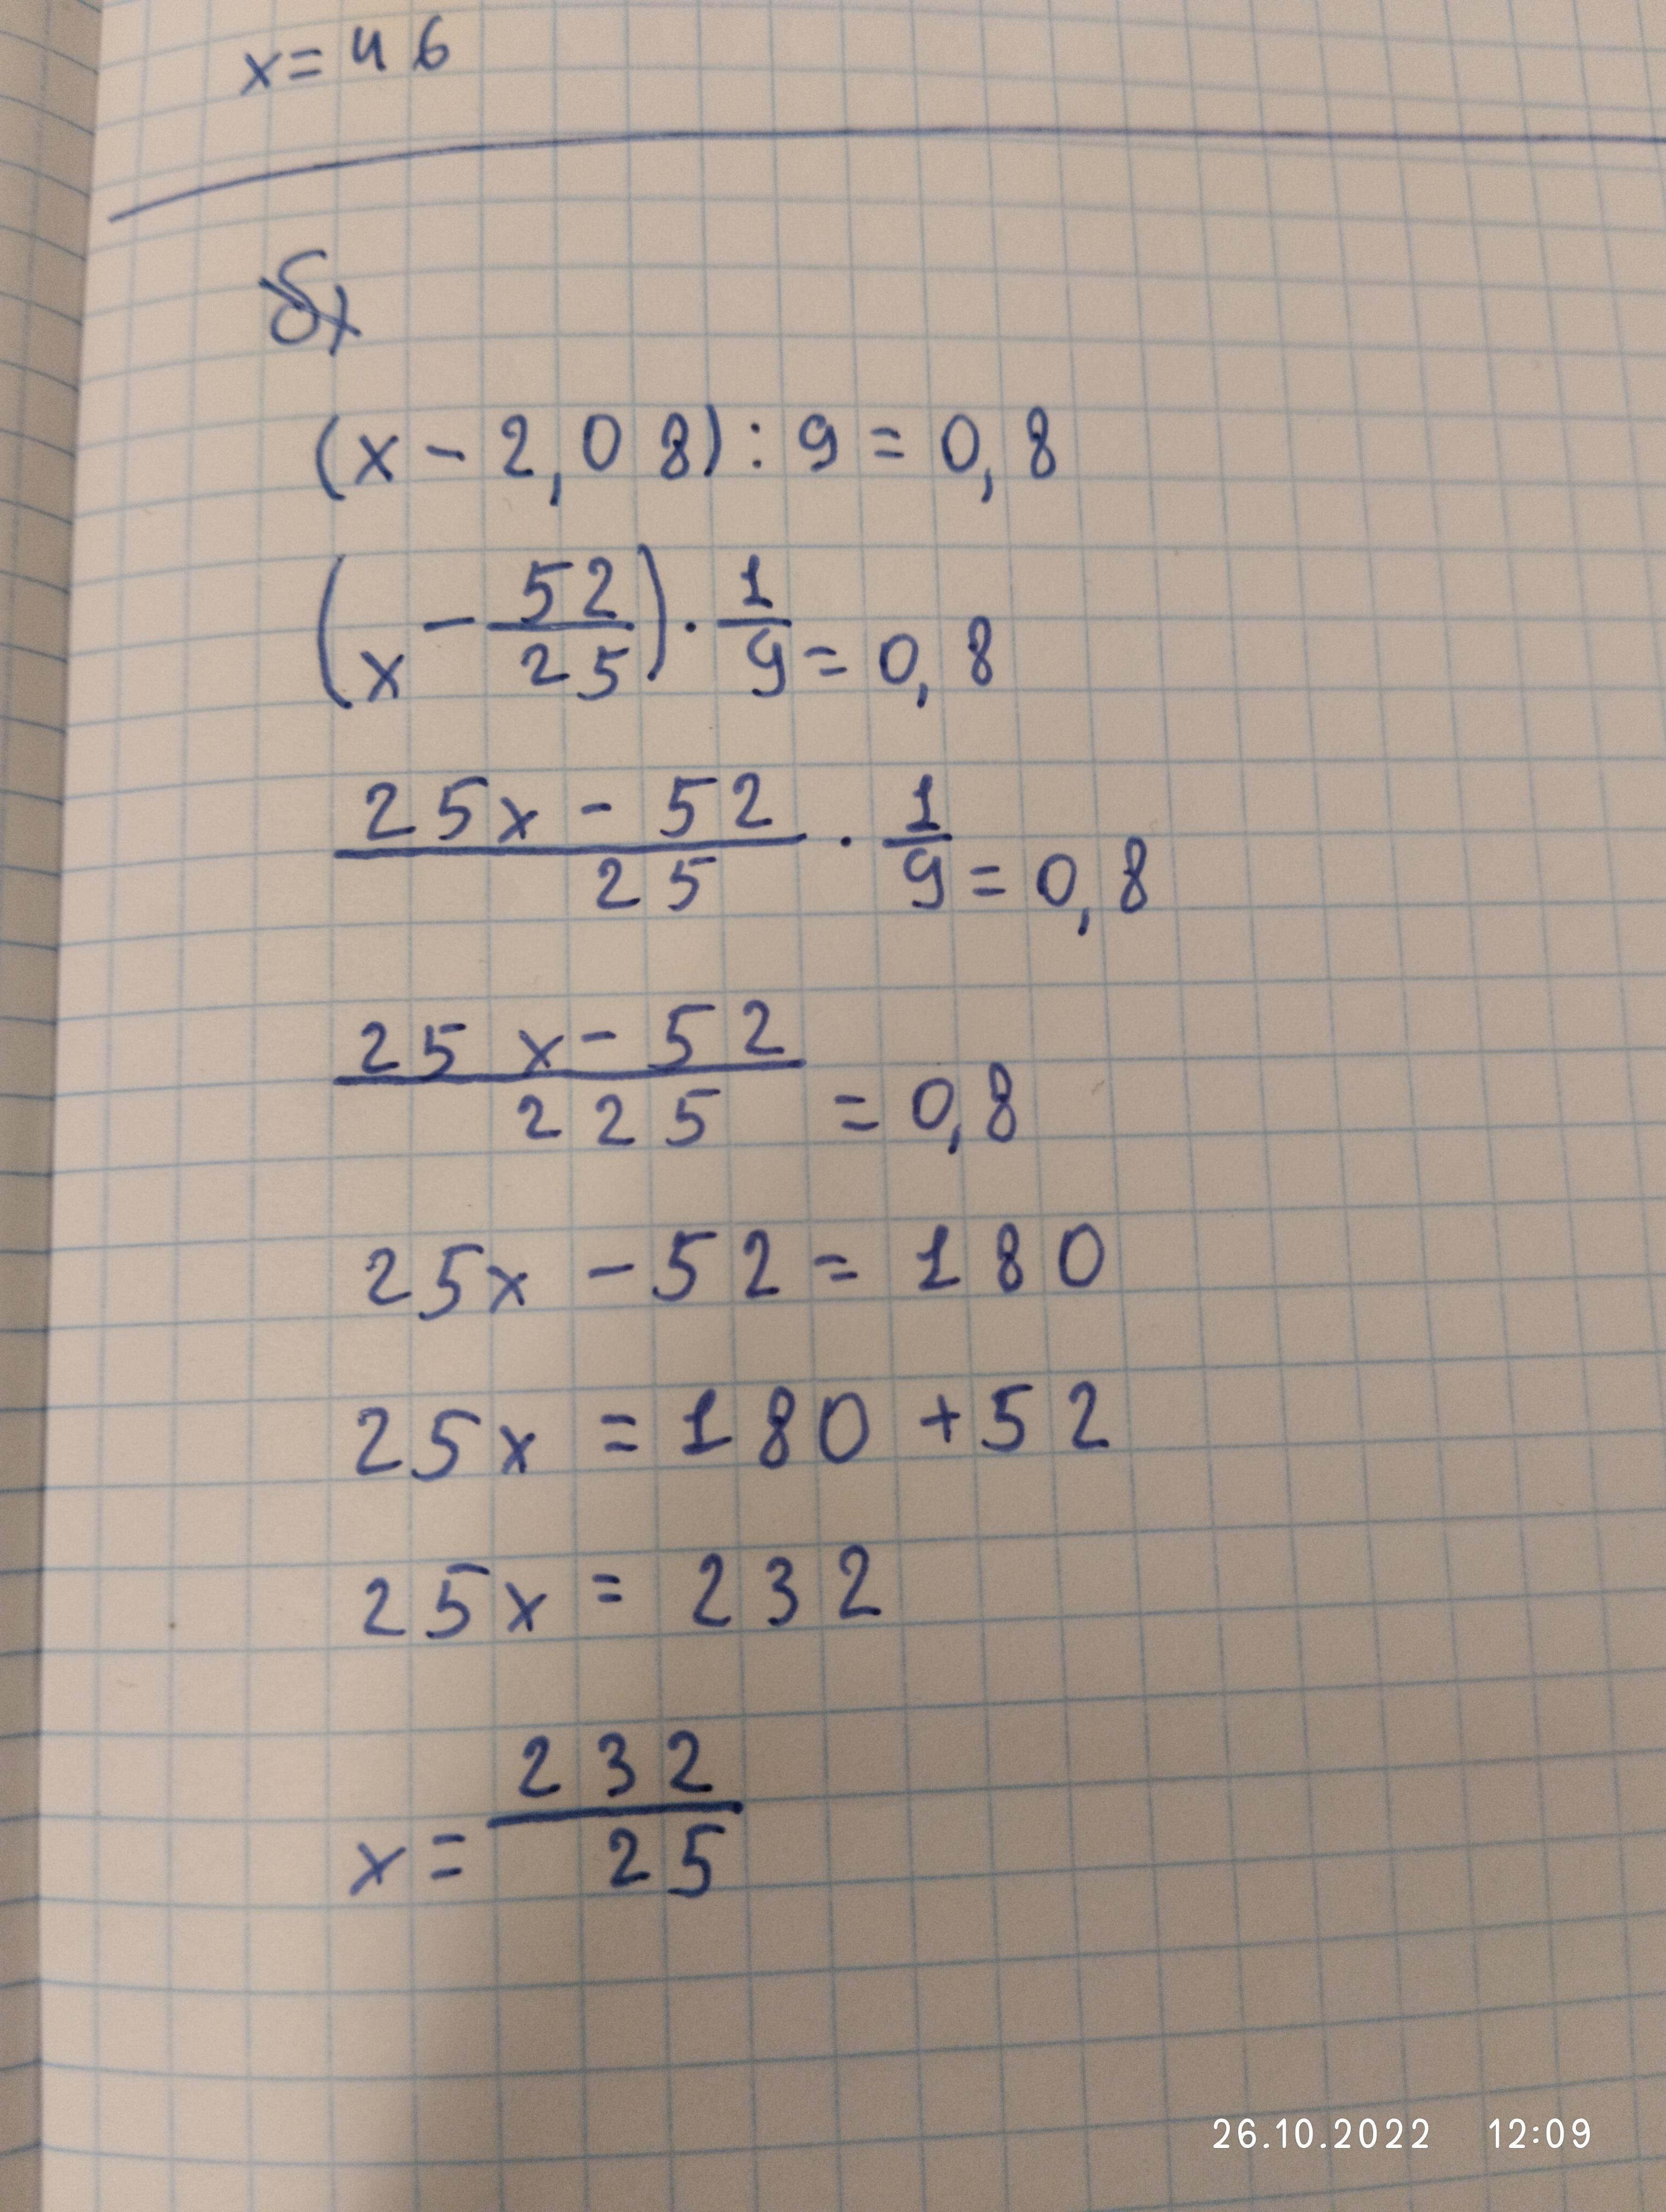 x = 46
б)
(x - 2,08) : 9 = 0,8
(x - 52/25) · 1/9 = 0,8
25x - 52/25 · 1/9 = 0,8
25x - 52/225 = 0,8
25x - 52 = 180
25x = 180 + 52
25x = 232
x = 232/25
26.10.2022 12:09